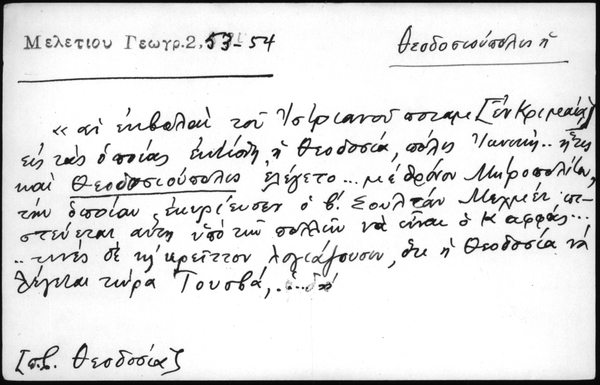 Μελετίου Γεωγρ. 2, 53-54
Θεοδοσιούπολις ἡ
« αἱ ἐκβολαὶ τοῦ ποταμ. [ἐν Κριμαίᾳ]
εἰς τὰς ὁποίας ἐκτίσθη ἡ Θεοδοσία, πόλις ... ἥτις
καὶ Θεοδοσιούπολις ἐλέγετο ... μὲ θρόνον Μητροπολίτου,
τὴν ὁποίαν ἐκυρίευσεν ὁ β'. Σουλτὰν Μεχμέτ πι-
στεύεται αὕτη ὑπὸ τῶν πολλῶν νὰ εἶναι ὁ Καφφᾶς ...
.. τινὲς δὲ κρεῖττον λογιάζουσιν, ὅτι ἡ Θεοδοσία νὰ
λέγεται τώρα Τουσβά, ...
[πβ. Θεοδοσία]